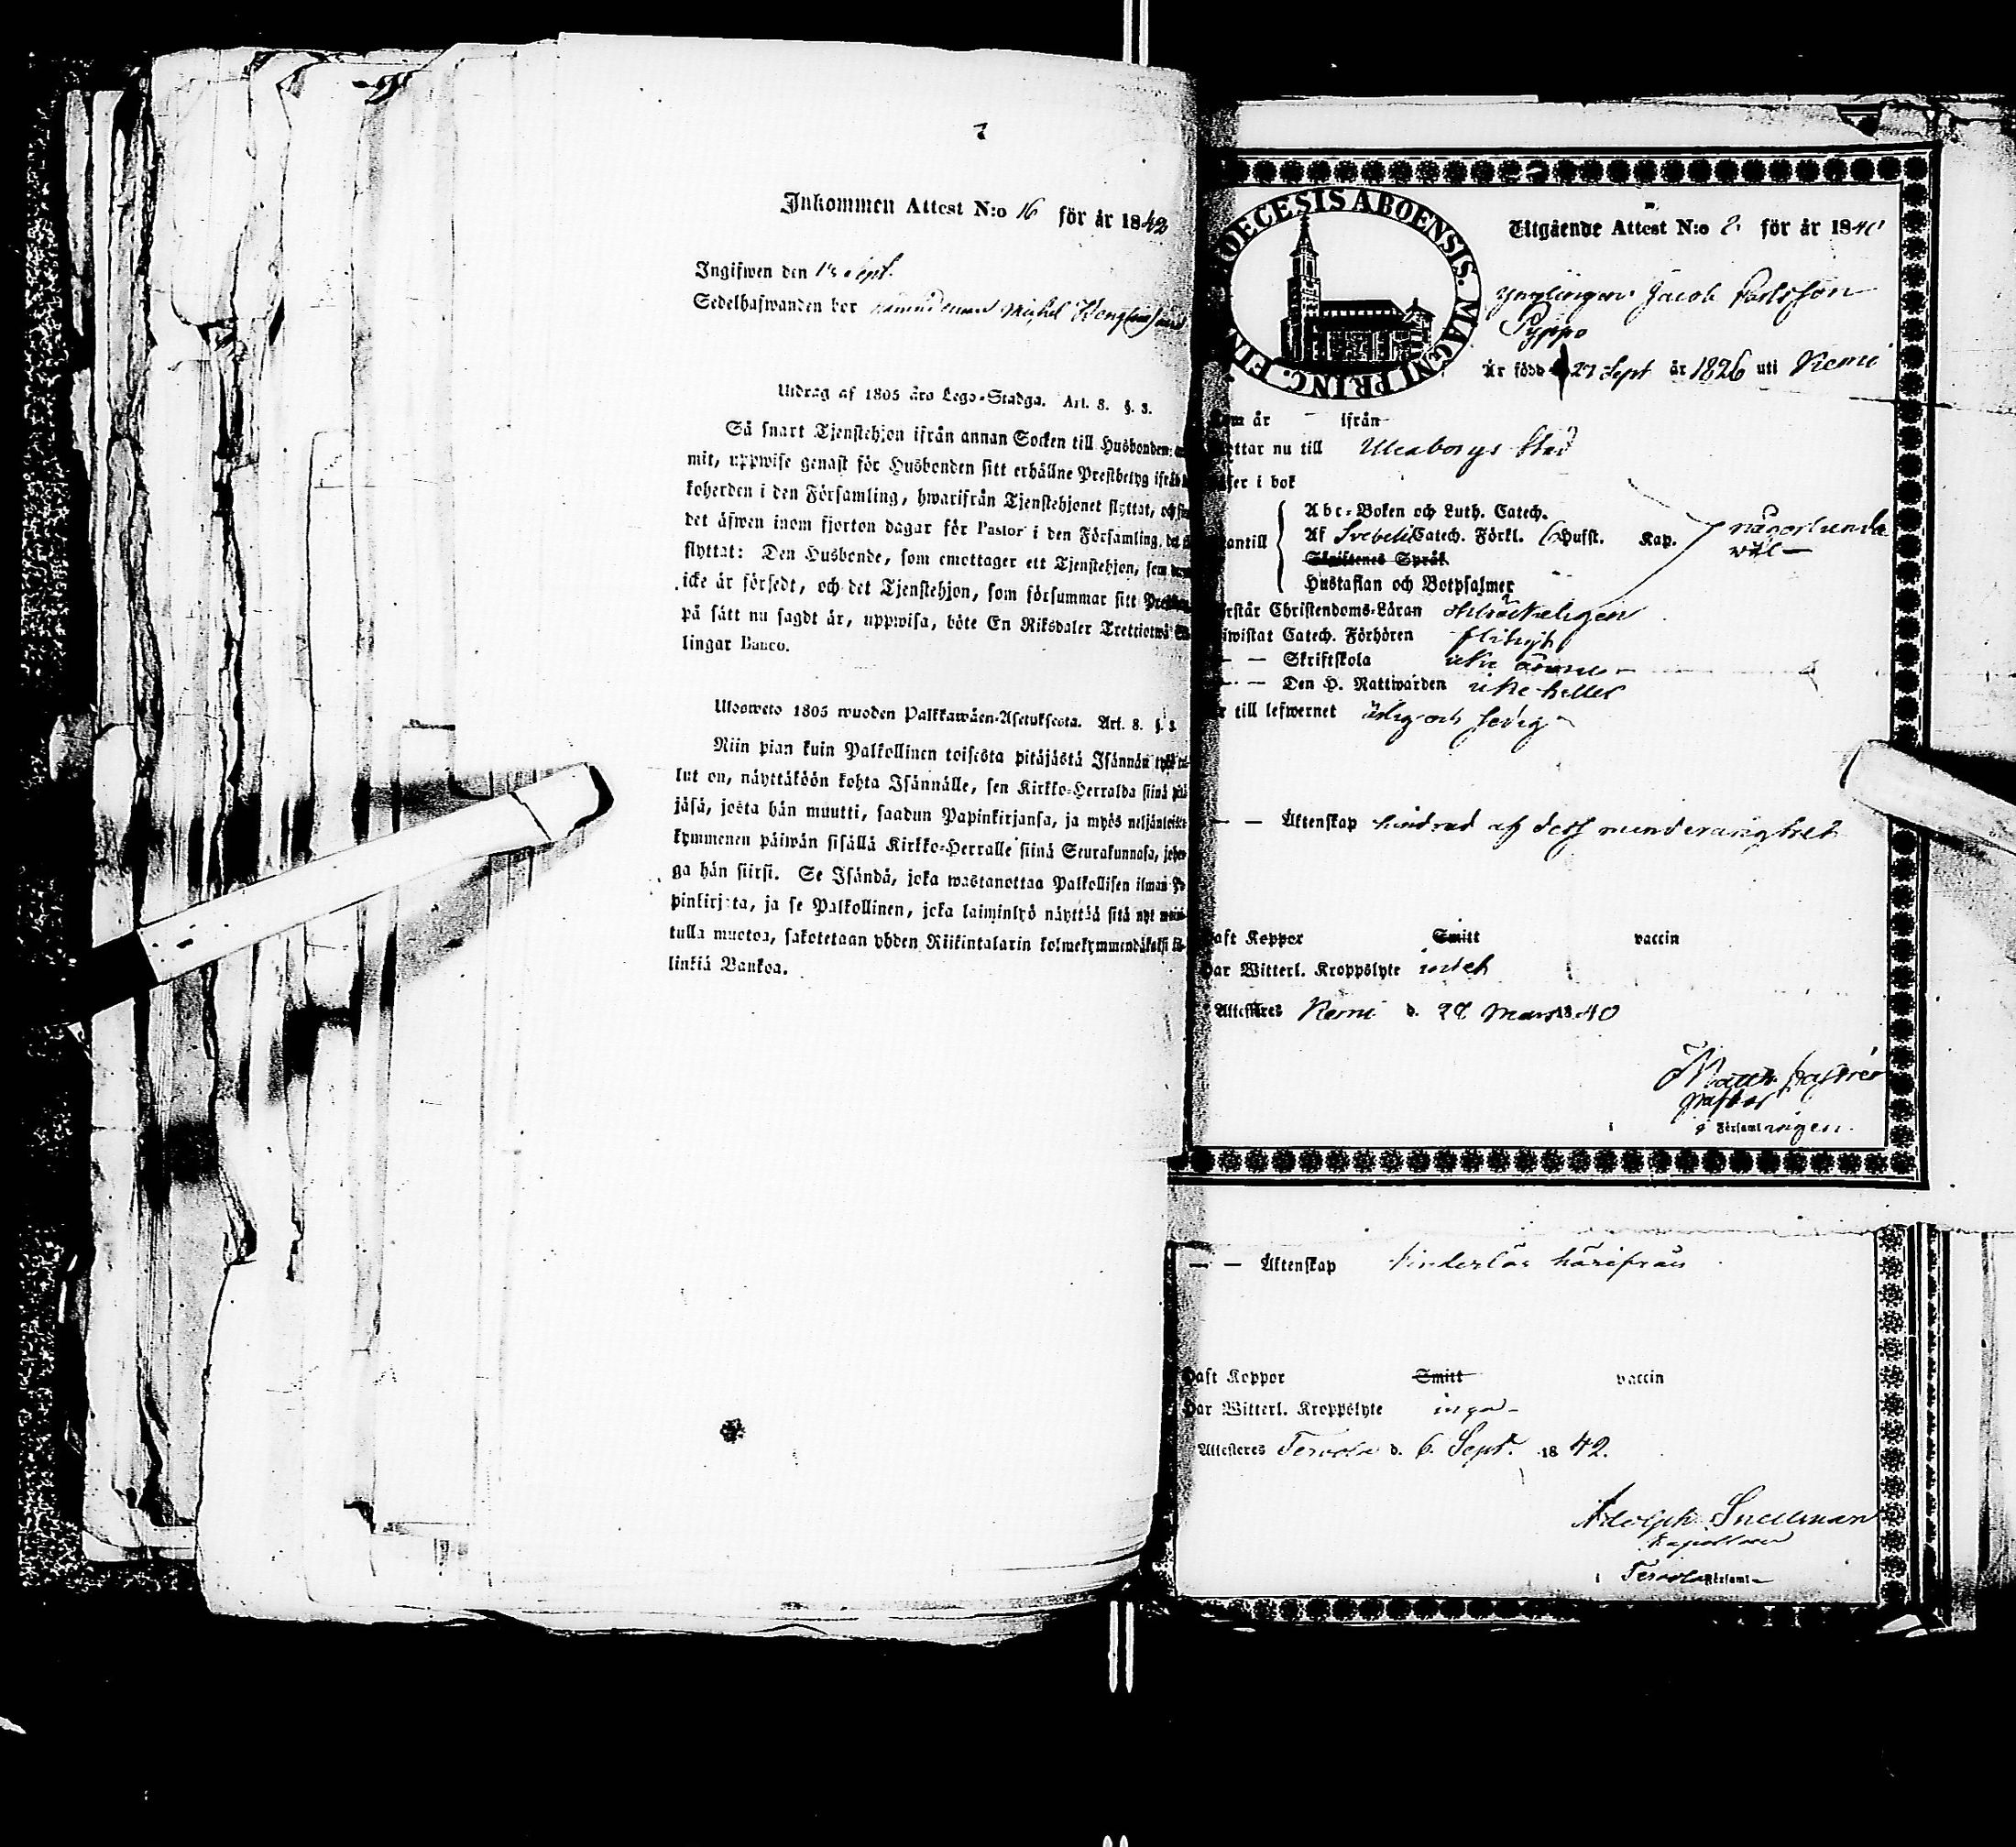 Inkommen Attest N:o 16 för år 1842
Ingifwen den 13 Sept.
Sedelhafwanden bor Michel
Utdrag af 1805 års Lego-Stadga. Art. 8. §. 3.
Så snart Tjenstehjon ifrån annan Socken till Husbonden
mit, uppwise genast för Husbonden sitt erhållne Prestbetyg ifrån
koherden i den Församling, hwarifrån Tjenstehjonet flyttat, och
det äfwen inom fjorton dagar för Pastor i den Församling, det
flyttat: Den Husbonde, som emottager ett Tjenstehjon, som
icke är försedt, och det Tjenstehjon, som försummar sitt
på sätt nu sagdt är, uppwisa, böte En Riksdaler Trettiotwå
lingar Banco.
Ulosweto 1805 wuoden Palkkawäen-Asetuksesta. Art. 8. §. 3.
Niin pian kuin Palkollinen toisesta pitäjästä Isännän tykö
lut on, näyttäköön kohta Isännälle, sen Kirkko-Herralda siinä
jäsä, josta hän muutti, saadun Papinkirjansa, ja myös neljäntoista
kymmenen päiwän sisällä Kirkko-Herralle siinä Seurakunnasa,
ga hän siirsi. Se Isändä, joka wastanottaa Palkollisen ilman
pinkirjata, ja se Palkollinen, joka laiminlyö näyttää sitä nyt
tulla muotoa, sakotetaan yhden Riikintalarin kolmekymmendäkaksi
linkiä Bankoa.
DIOECESIS ABOENSIS. MAGNI PRINC. FIN
Utgående Attest N:o 2 för år 1840
Ynglingen Jacob
Pyppö
Är född 27 Sept år 1826 uti Kemi
år ifrån
ttar nu till Uleåborgs Stad
i bok
antill
Abc-Boken och Luth. Catech.
Af Svebelii Catech. Förkl. Husst. Kap. någorlunda
Skriftenes Språk wäl
Hustaflan och Botpsalmer
rstår Christendoms-Läran
iwistat Catech. Förhören flitigt
— — Skriftskola icke ännu
— — Den H. Nattwarden icke heller
till lefwernet ärlig och fredig
— — Äktenskap hindrad af dess minderårighet
aft Koppor Smitt vaccin
Har Witterl. Kroppslyte intet
Attesteres Kemi d. 28 Mars 1840
Matth. Castrén
Pastor
i Församlingen.
— — Äktenskap hinderlös härifrån
aft Koppor Smitt vaccin
Har Witterl. Kroppslyte inga
Attesteres Tervola d. 6 Sept. 1842.
Adolph Snellman
Kapellan
i Tervola Församl